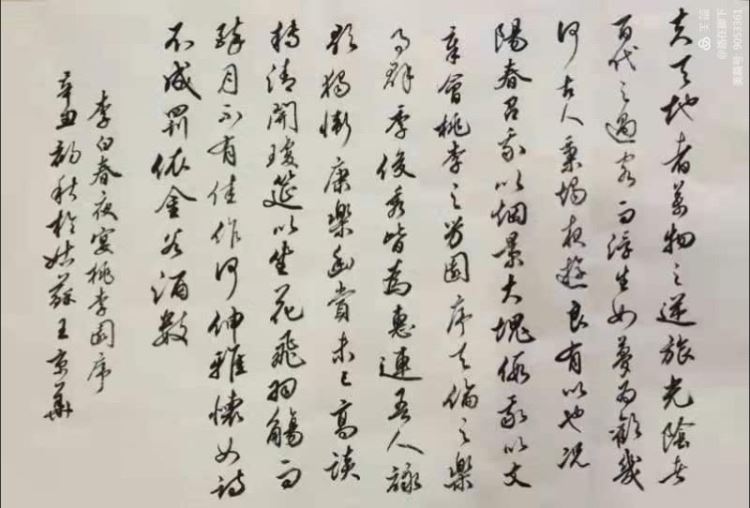 夫天地者萬物之逆旅光陰者
百代之過客而浮生如夢為歡幾
何古人秉燭夜遊良有以也況
陽春召我以烟景大塊假我以文
章會桃李之芳園序天倫之樂
事群季俊秀皆為惠連吾人詠
歌獨慚康樂幽賞未已高談
轉清開瓊筵以坐花飛羽觴而
醉月不有佳作何伸雅懷如詩
不成罰依金谷酒數
李白春夜宴桃李園序
辛丑韵秋於姑蘇王京華
美篇
美篇号 9053361